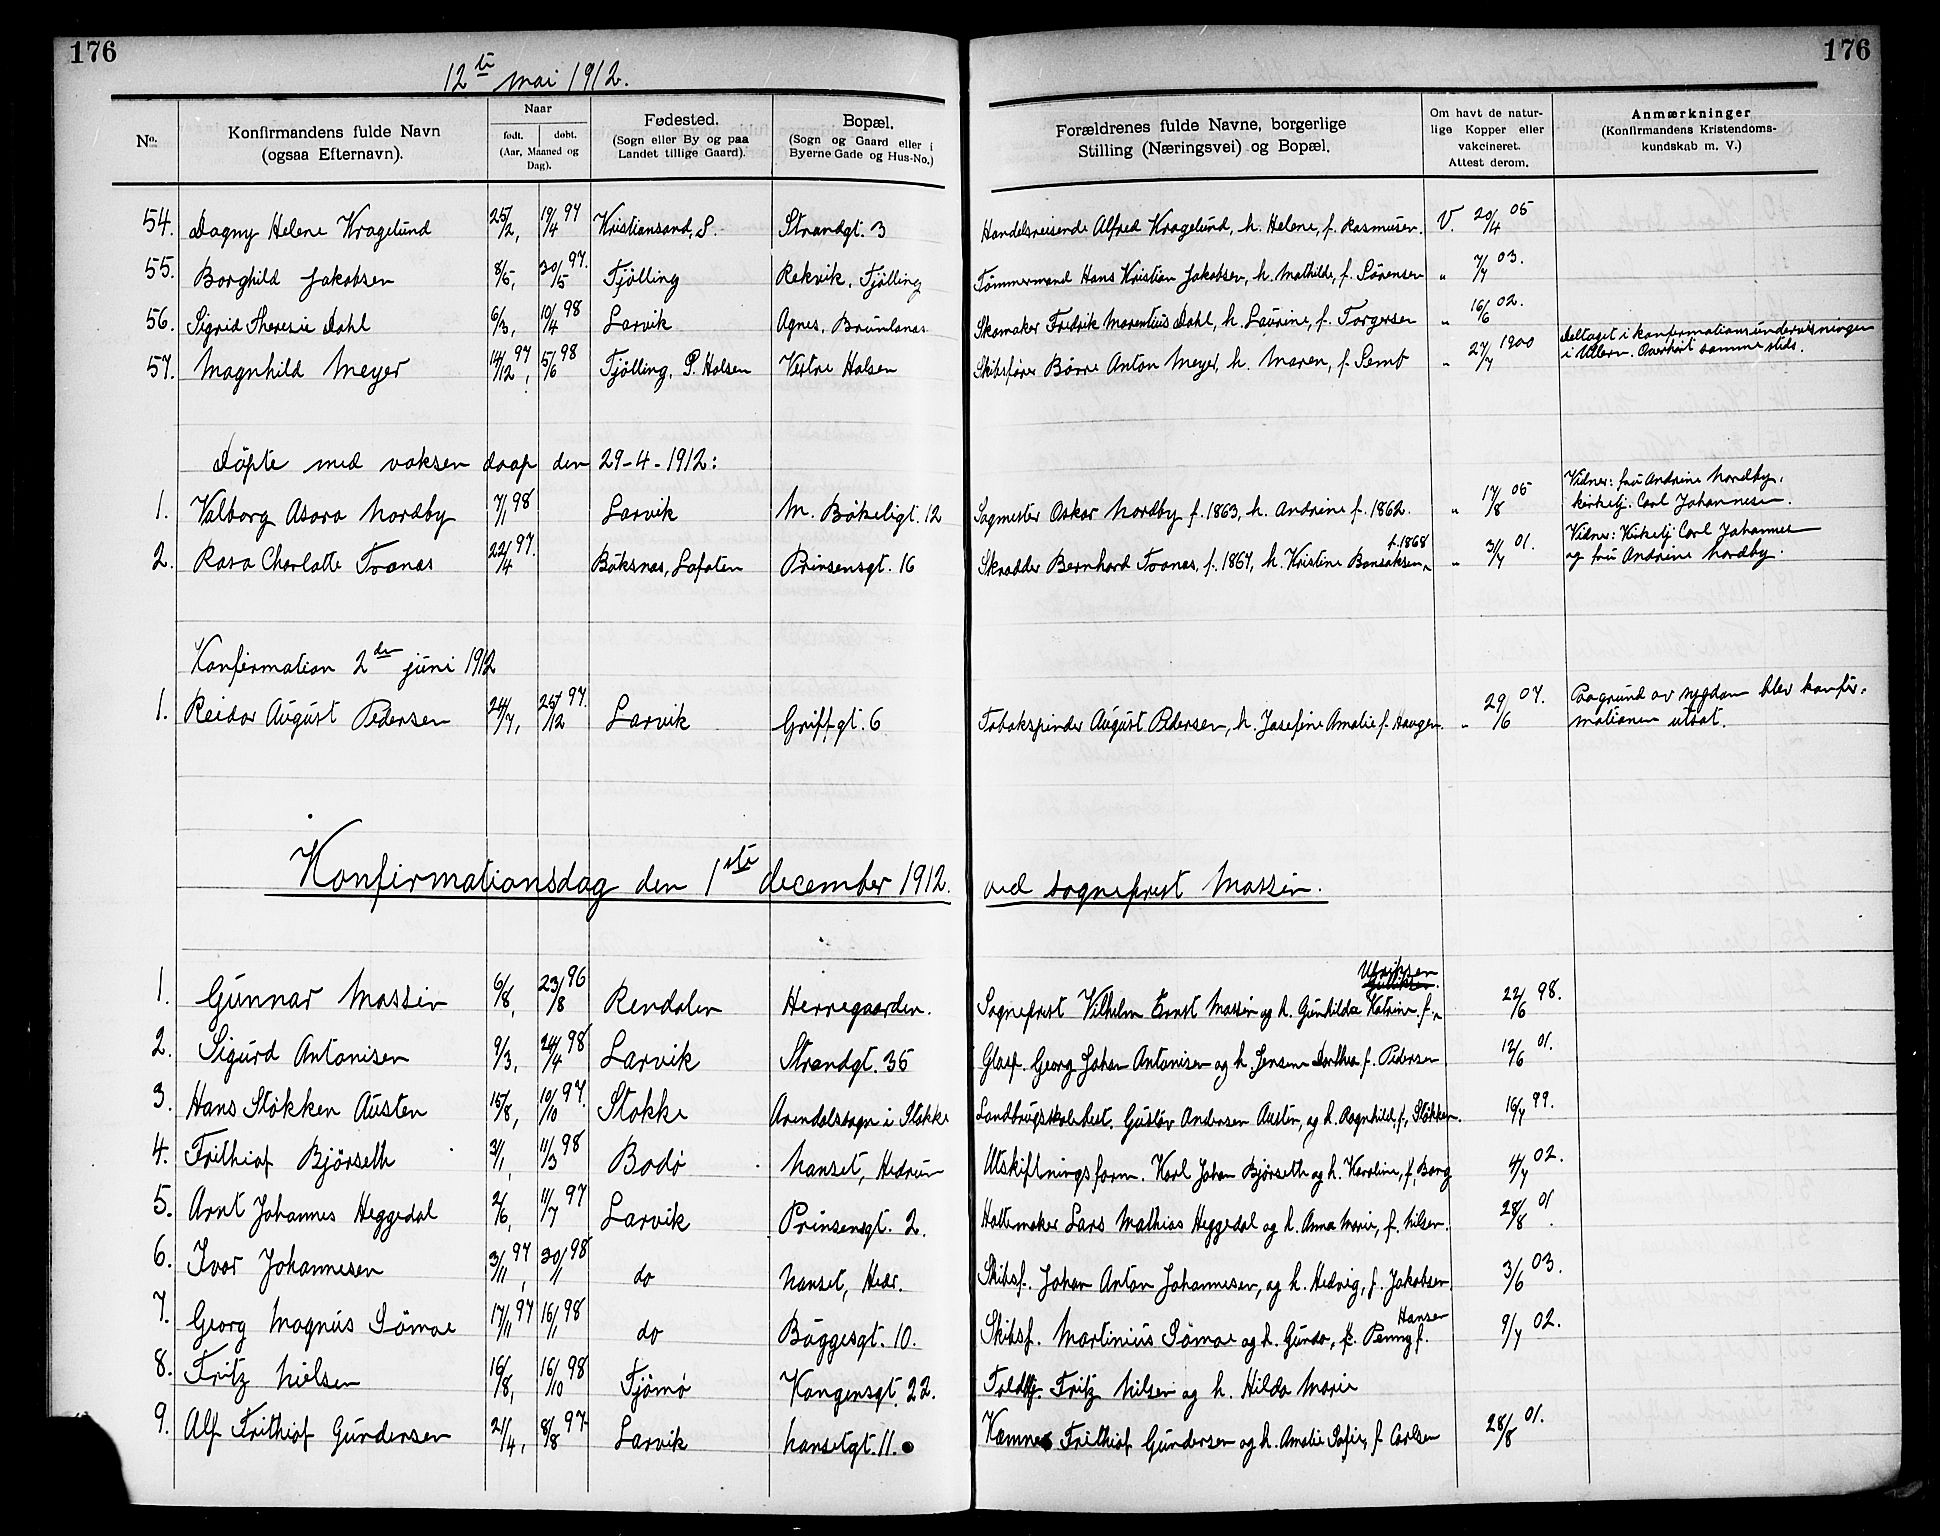 176
176
12te mai 1912.
No.
Konfirmandens fulde Navn
(ogsaa Efternavn).
Naar
født. døbt.
(Aar, Maaned og Dag).
Fødested.
(Sogn eller By og paa
Landet tillige Gaard).
Bopæl.
(Sogn og Gaard eller i
Byerne Gade og Hus-No.)
Forældrenes fulde Navne, borgerlige
Stilling (Næringsvei) og Bopæl.
Om havt de natur-
lige Kopper eller
vakcineret.
Attest derom.
Anmærkninger
(Konfirmandens Kristendoms-
kundskab m. V.)
54. Dagny Helene Kragelund 25/2, 19/4 97 Kristiansand, S. Strandgt. 3 Handelsreisende Alfred Kragelund, h. Helene, f. Rasmussen. V. 20/4 05
55. Borghild Jakobsen 8/5, 30/5 97. Tjølling Rekvik, Tjølling Tømmermand Hans Kristian Jakobsen, h. Mathilde, f. Sørensen " 7/7 03.
56. Sigrid Theresie Dahl 6/3, 10/4 98 Larvik Agnes, Brunlanes Skomaker Fredrik Marentius Dahl, h. Laurine, f. Torgersen " 16/6 02.
57. Magnhild Meyer 14/12 97, 5/6 98 Tjølling, P. Halsen Vestre Halsen Skibsfører Børre Anton Meyer, h. Maren, f. Semb " 27/7 1900 Deltaget i konfirmationsundervisningen
i Ullern. Overhørt sammesteds.
Døpte med voksen daap den 29-4-1912:
1. Valborg Asora Nordby 7/1 98 Larvik M. Bøkeligt. 12 Sagmester Oskar Nordby f. 1863, h. Andrine f. 1862. " 17/8 05 Vidner: fru Andrine Nordby,
kirketj. Carl Johannesen.
2. Rasa Charlotte Tranas 22/4 97. Bøksnes, Lofoten Prinsensgt. 16 Skrædder Bernhard Tranas, f. 1867, h. Kristine Bansaksen f. 1868 " 3/7 01. Vidner: Kirketj. Carl Johannsen
og fru Andrine Nordby.
Konfirmation 2den juni 1912
1. Reidar August Pedersen 24/7, 25/12 97. Larvik Griffgt. 6 Tobakspinder August Pedersen, h. Josefine Amalie f. Haugen. " 29/6 07. Paagrund av sygdom blev konfir-
mationen utsat.
Konfirmationsdag den 1ste december 1912. ved sogneprest Massin.
1. Gunnar Massin 6/8, 23/8 96 Rendalen Herregaarden. Sogneprest Vilhelm Ernst Massin og h. Gunhilda Katrine f. Ulriksen 22/6 98.
2. Sigurd Antonisen 9/3, 24/4 98 Larvik Strandgt. 35 Glasf. Georg Johan Antonisen og h. Jensen Dorthea f. Pedersen 12/6 01.
3. Hans Støkken Austen 15/8, 10/10 97. Stokke Arendalssogn i Stokke Landbrugsskolebest. Gustav Andersen Austen, og h. Ragnhild, f. Støkken. 16/7 99.
4. Frithiof Bjørseth 3/1, 11/3 98 Bodø Nanset, Hedrum Utskiftningsform. Karl Johan Bjørseth og h. Karoline, f. Borg 4/7 02.
5. Arnt Johannes Heggedal 2/6, 11/7 97 Larvik Prinsensgt. 2. Hattemaker Lars Mathias Heggedal og h. Anna Marie, f. Nilsen. 28/8 01.
6. Ivar Johannesen 3/11 97, 30/1 98 do Nanset, Hedr. Skibsf. Johan Anton Johannesen, og h. Hedvig, f. Jakobsen 3/6 03.
7. Georg Magnus Sømae 17/11 97 16/1 98 do Buggesgt. 10. Skibsf. Martinius Sømae og h. Gunda, Penny f. Hansen 9/7 02.
8. Fritz Nielsen 16/8, 16/10 98 Tjømø Kongensgt. 22. Toldbtj. Fritz Nilsen og h. Hilda Marie
9. Alf Frithiof Gundersen 21/4, 8/8 97 Larvik Nansetgt. 11. Kæmner Frithiof Gundersen og h. Amalie Sofie, f. Carlsen 28/8 01.